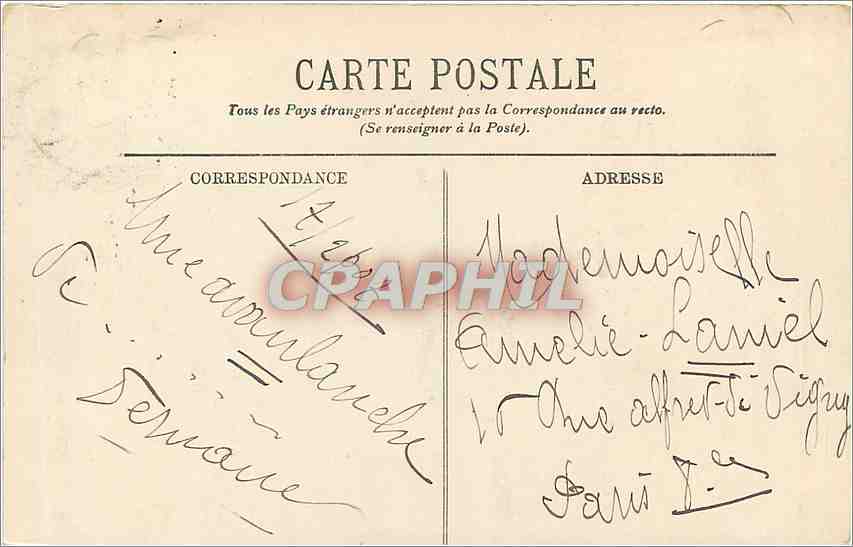 CARTE POSTALE
Tous les Pays étrangers n'acceptent pas la Correspondance au recto.
(Se renseigner à la Poste).
CORRESPONDANCE
ADRESSE
Une avalanche
de .....
CPAPHIL
Mademoiselle
Amelie-Laniel
Rue alfred-de Vigny
Paris 8e